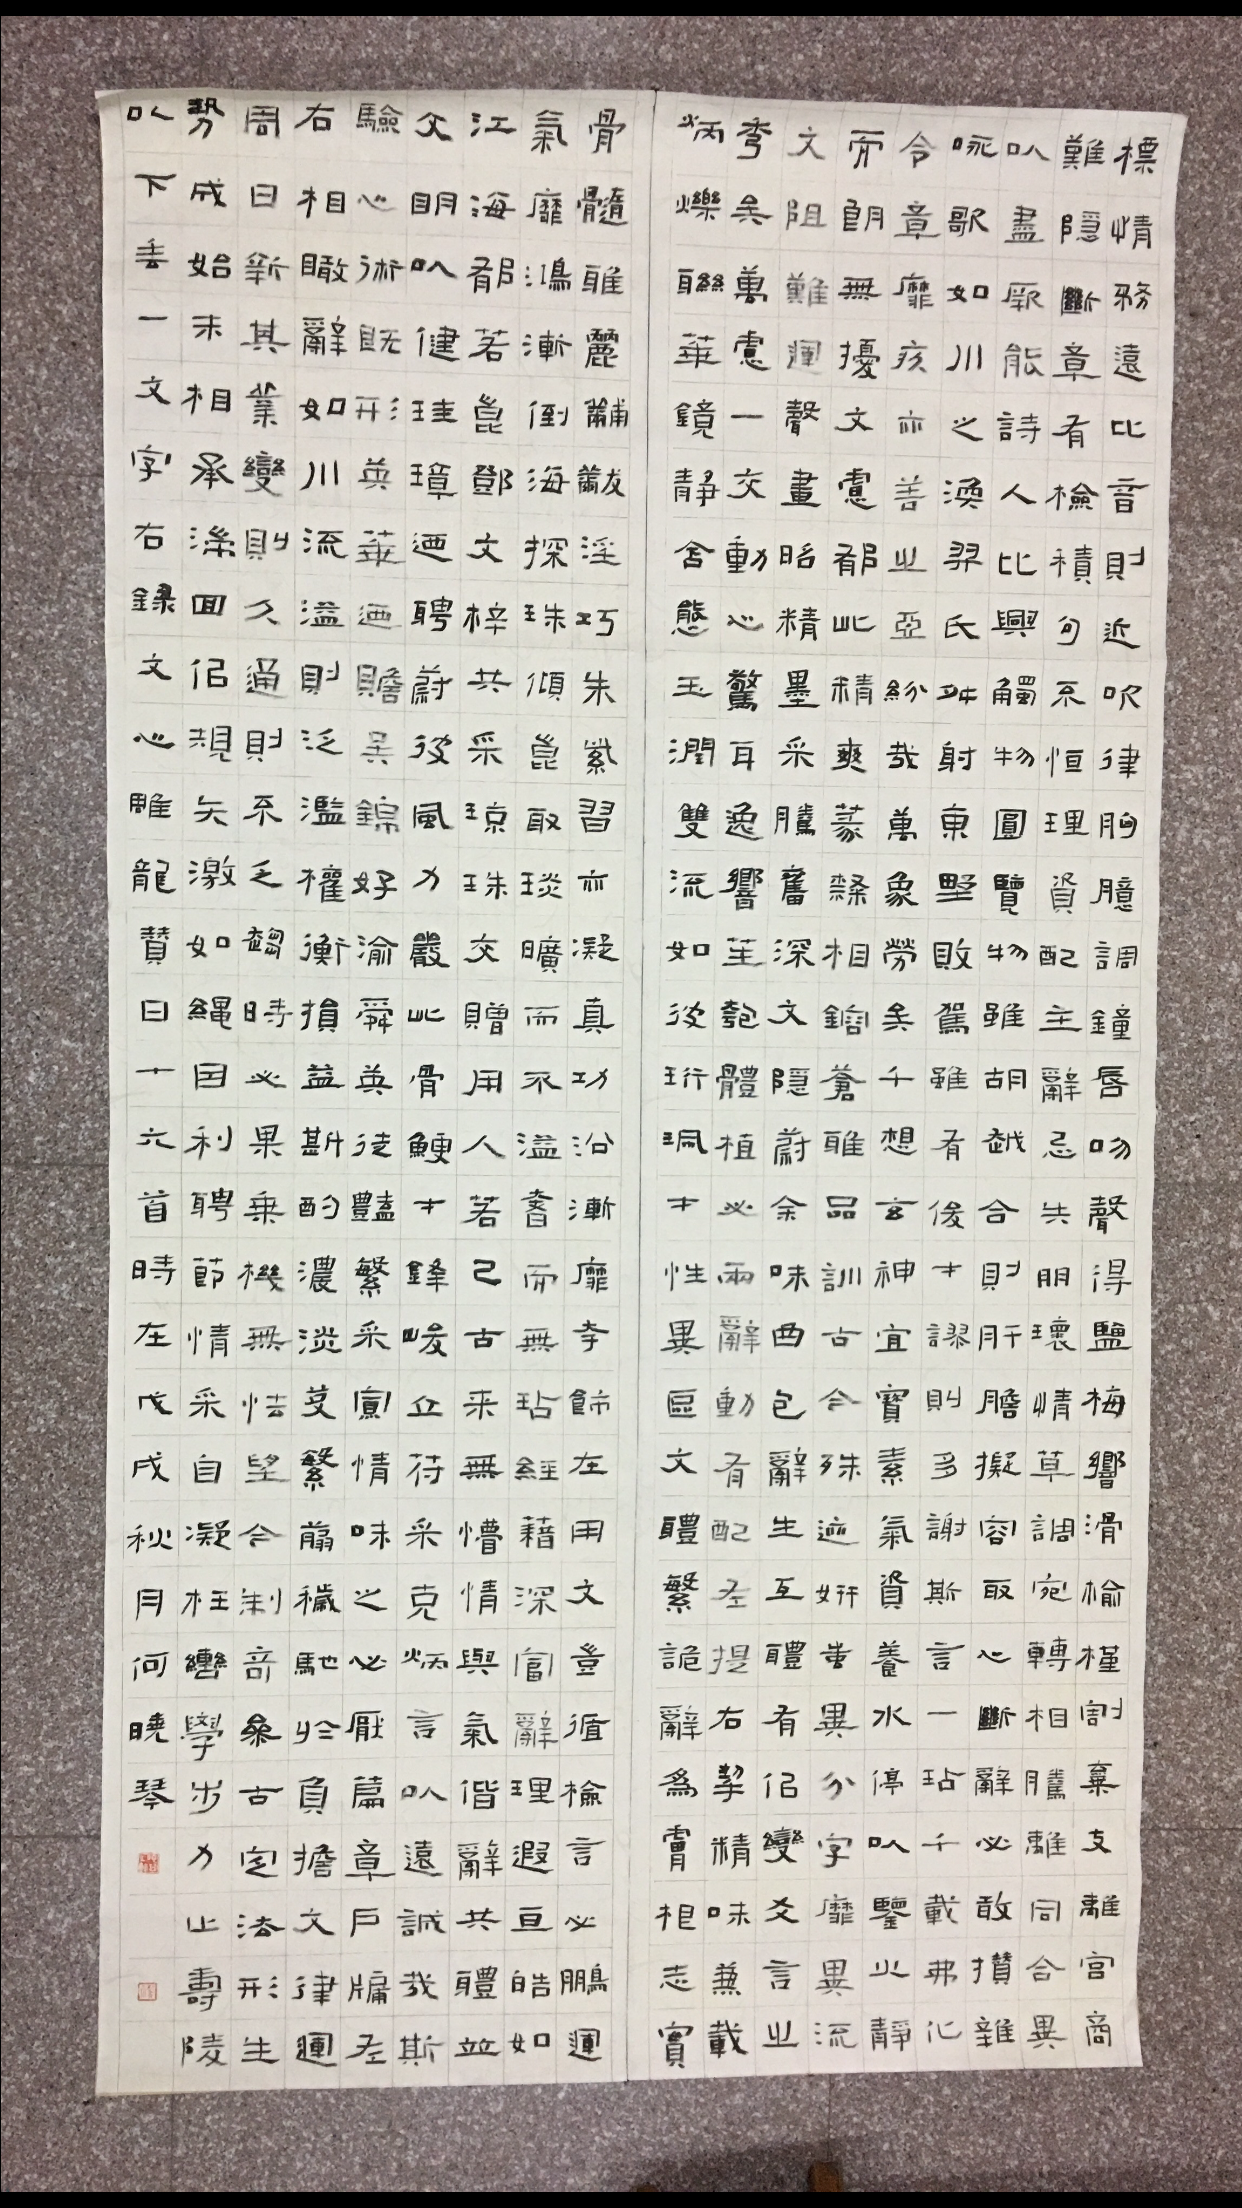 標情務遠比音則近吹律胸臆調鐘脣吻聲得鹽梅響滑榆槿割棄支離宮商
難隱斷章有檢積句不恒理資配主辭忌失朋環情草調宛轉相騰離同合異
以盡厥能詩人比興觸物圓覽物雖胡越合則肝膽擬容取心斷辭必敢攢雜
咏歌如川之渙羿氏舛射東野敗駕雖有後才謬則多謝斯言一玷千載弗化
令章靡疚亦善之亞紛哉萬象勞矣千想玄神宜寶素氣資養水停以鑒火靜
而朗無擾文慮鬱此精爽篆隸相鎔蒼雅品訓古今殊迹妍蚩異分字靡異流
文阻難運聲畫昭精墨采騰奮深文隱蔚余味曲包辭生互體有似變爻言之
秀矣萬慮一交動心驚耳逸響笙匏體植必兩辭動有配左提右挈精味兼載
炳爍聯華鏡靜含態玉潤雙流如彼珩珮才性異區文體繁詭辭為膚根志實
骨髓雅麗黼黻淫巧朱紫習亦凝真功沿漸靡夸飾在用文豈循檢言必鵬運
氣靡鴻漸倒海探珠傾崑取琰曠而不溢奢而無玷經藉深富辭理遐亘皓如
江海鬱若崑鄧文梓共采瓊珠交贈用人若己古来無懵情與氣偕辭共體並
文明以健珪璋迺聘蔚彼風力嚴此骨鯁才鋒峻立符采克炳言以遠誠哉斯
驗心術既形英華迺贍吳錦好渝舜英徒豔繁采寡情味之必厭篇章戶牖左
右相瞰辭如川流溢則泛濫權衡損益斟酌濃淡芟繁剪穢馳於負擔文律運
周日新其業變則久通則不乏趨時必果乘機無怯望今制奇參古定法形生
勢成始末相承湍回似規矢激如繩因利聘節情采自凝枉轡學步力止壽陵
以下丟一文字右錄文心雕龍贊曰十六首時在戊戌秋月何曉琴